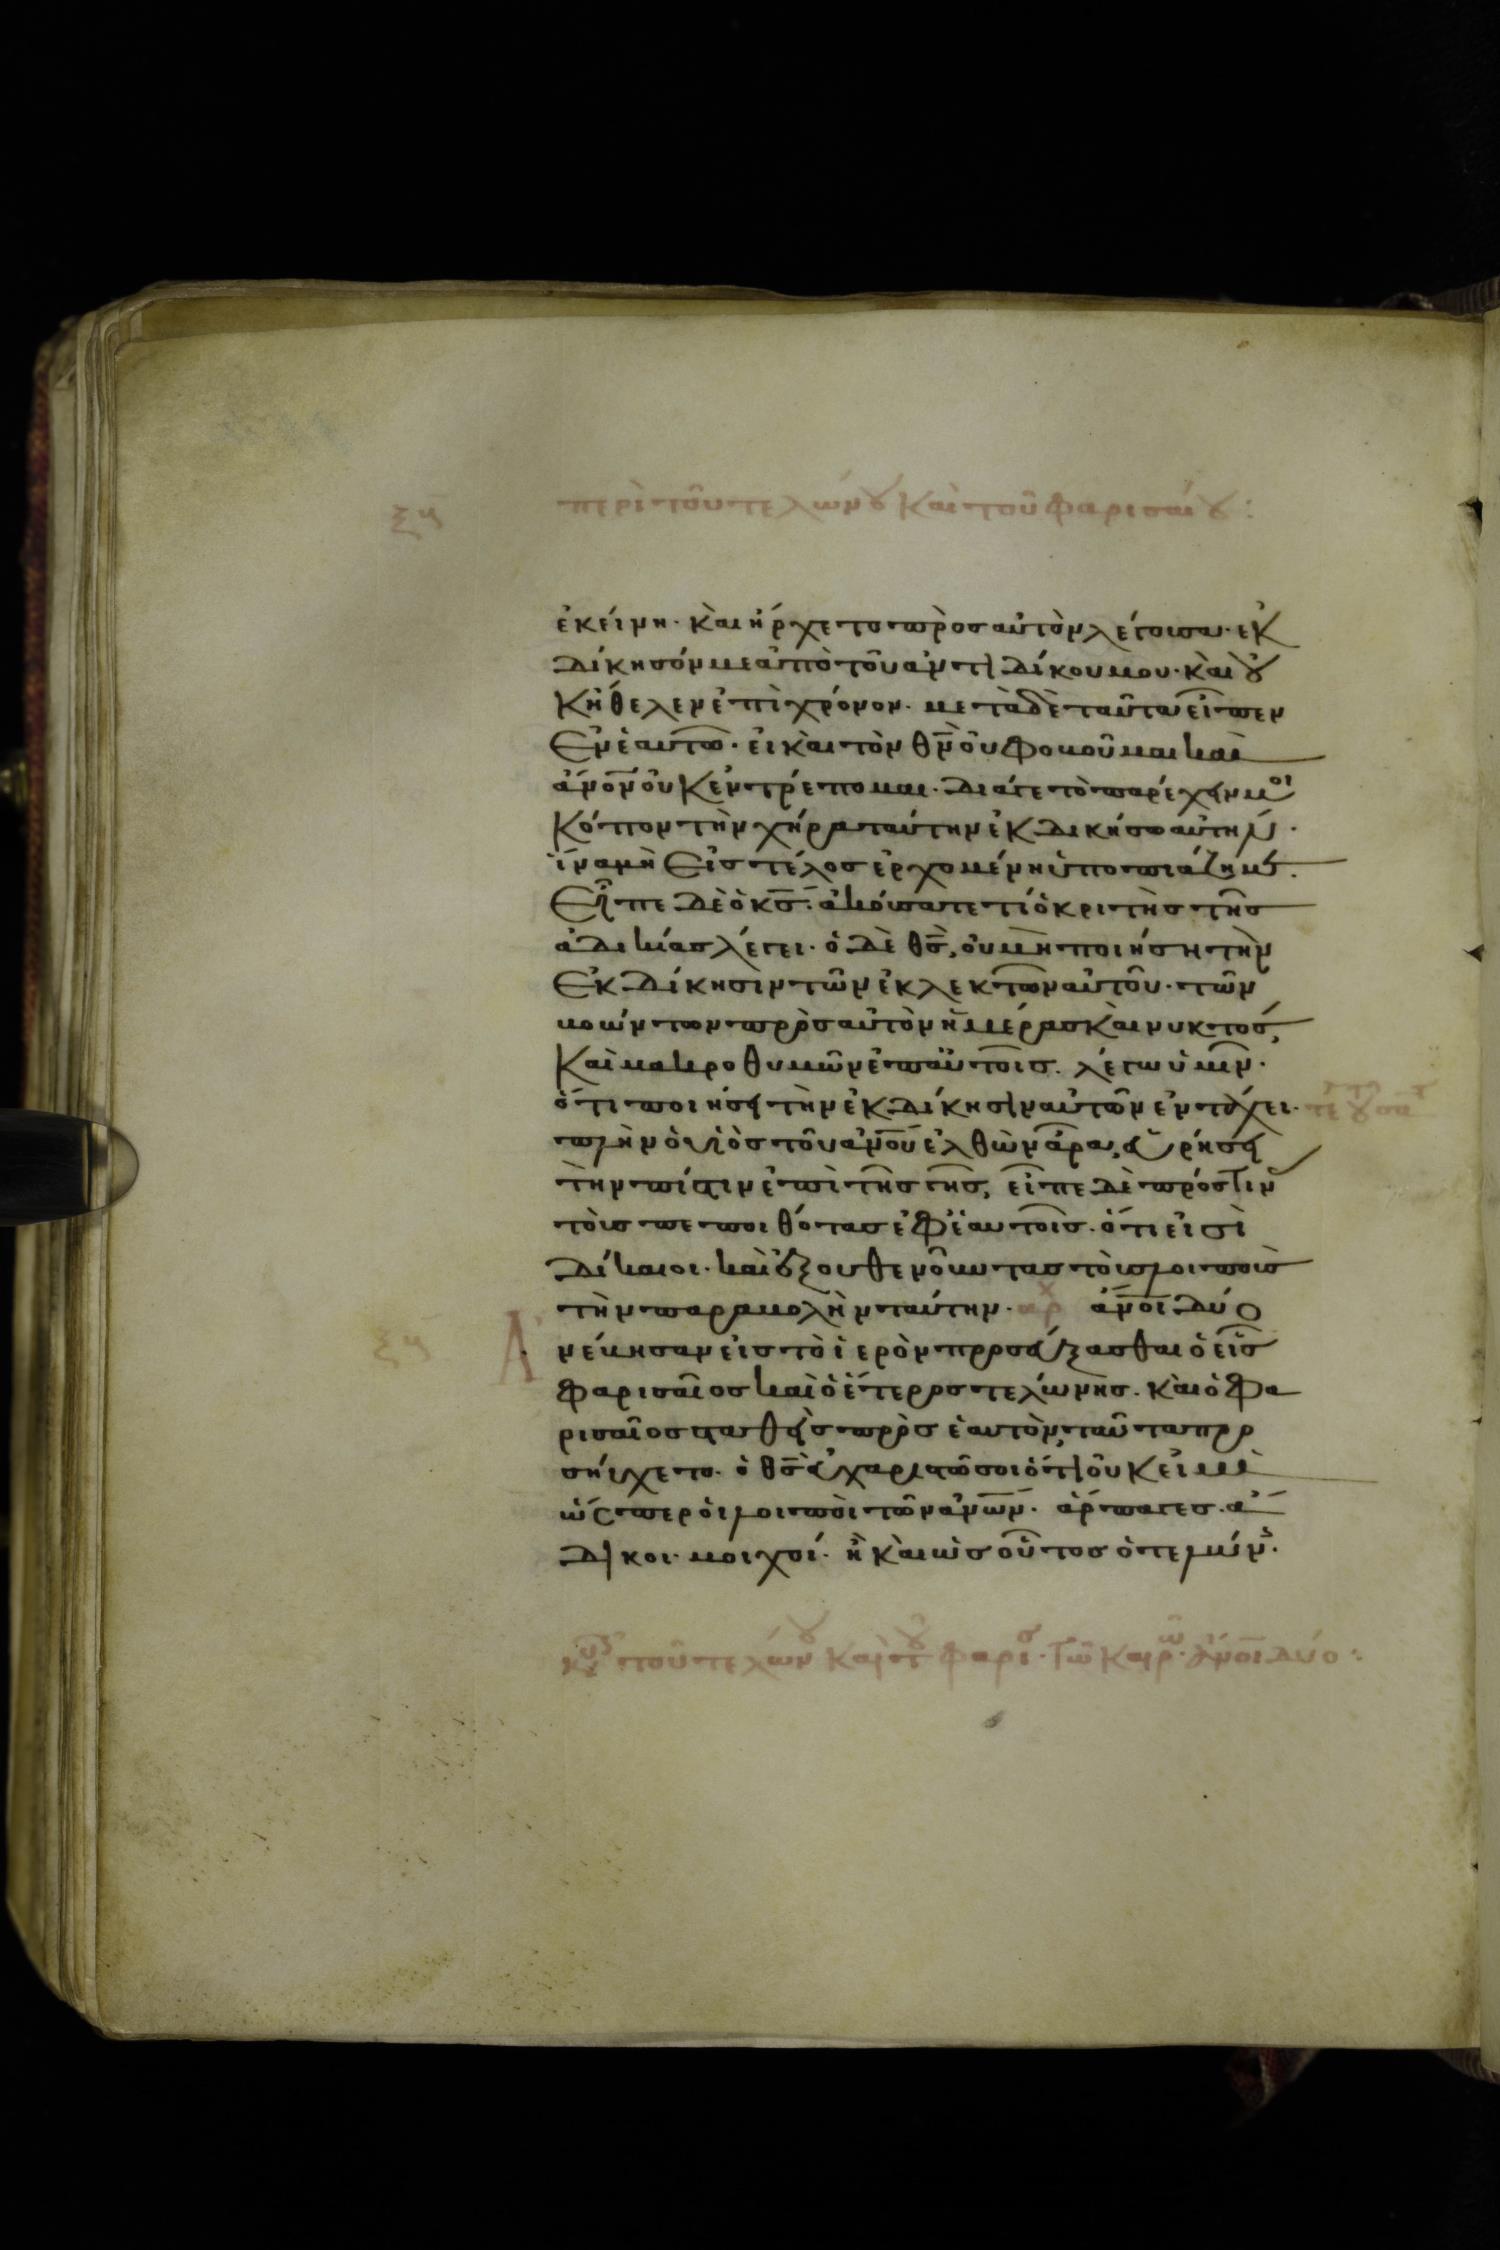 περὶ τοῦ τελώνου καὶ τοῦ φαρισαίου:
ἐκείνη· καὶ ἤρχετο πρὸς αὐτὸν λέγουσα· ἐκ
δίκησόν με ἀπὸ τοῦ ἀντιδίκου μου· καὶ οὐ
κ ἤθελεν ἐπὶ χρόνον· μετὰ δὲ ταῦτα εἶπεν
ἐν ἑαυτῶ· εἰ καὶ τὸν θν οὐ φοβοῦμαι καὶ
ἄνον οὐκ ἐντρέπομαι· διά γε τὸ παρέχειν μοι
κόπον τὴν χήραν ταύτην ἐκδικήσω αὐτήν·
ἵνα μὴ εἰς τέλος ἐρχομένη ὑποπιάζη με.
Εἶπε δὲ ὁ κς· ἀκούσατε τί ὁ κριτὴς τῆς
ἀδικίας λέγει· ὁ δὲ θς, οὐ μὴ ποιήση τὴν
ἐκδίκησιν τῶν ἐκλεκτῶν αὐτοῦ· τῶν
βοώντων πρὸς αὐτὸν ἡμέρας καὶ νυκτός,
καὶ μακροθυμῶν ἐπ αὐτοῖς. λέγω ὑμῖν·
ὅτι ποιήσει τὴν ἐκδίκησιν αὐτῶν ἐν τάχει·
πλὴν ὁ υἱὸς τοῦ ἀνου ἐλθὼν ἆρα, εὑρήσει
τὴν πίστιν ἐπὶ τῆς γῆς, εἶπε δὲ πρός τιν
τοὺς πεποιθότας ἐφ ἑαυτοῖς· ὅτι εἰσὶ
δίκαιοι· καὶ ἐξουθενοῦντας τοὺς λοιποὺς
τὴν παραβολὴν ταύτην· αρχ ἄνοι δύο
ξη Ἀ νέβησαν εἰς τὸ ἱερὸν προσεύξασθαι ὁ εἷς
φαρισαῖος καὶ ὁ ἕτερος τελώνης. καὶ ὁ φα
ρισαῖος σταθεὶς πρὸς ἑαυτὸν, ταῦτα προ
σηύχετο· ὁ θς εὐχαριστῶ σοι ὅτι οὐκ εἰμὶ
ὥσπερ οἱ λοιποὶ τῶν ἀνων· ἅρπαγες. ἄ
δικοι· μοιχοί· ἢ καὶ ὡς οὗτος ὁ τελών·